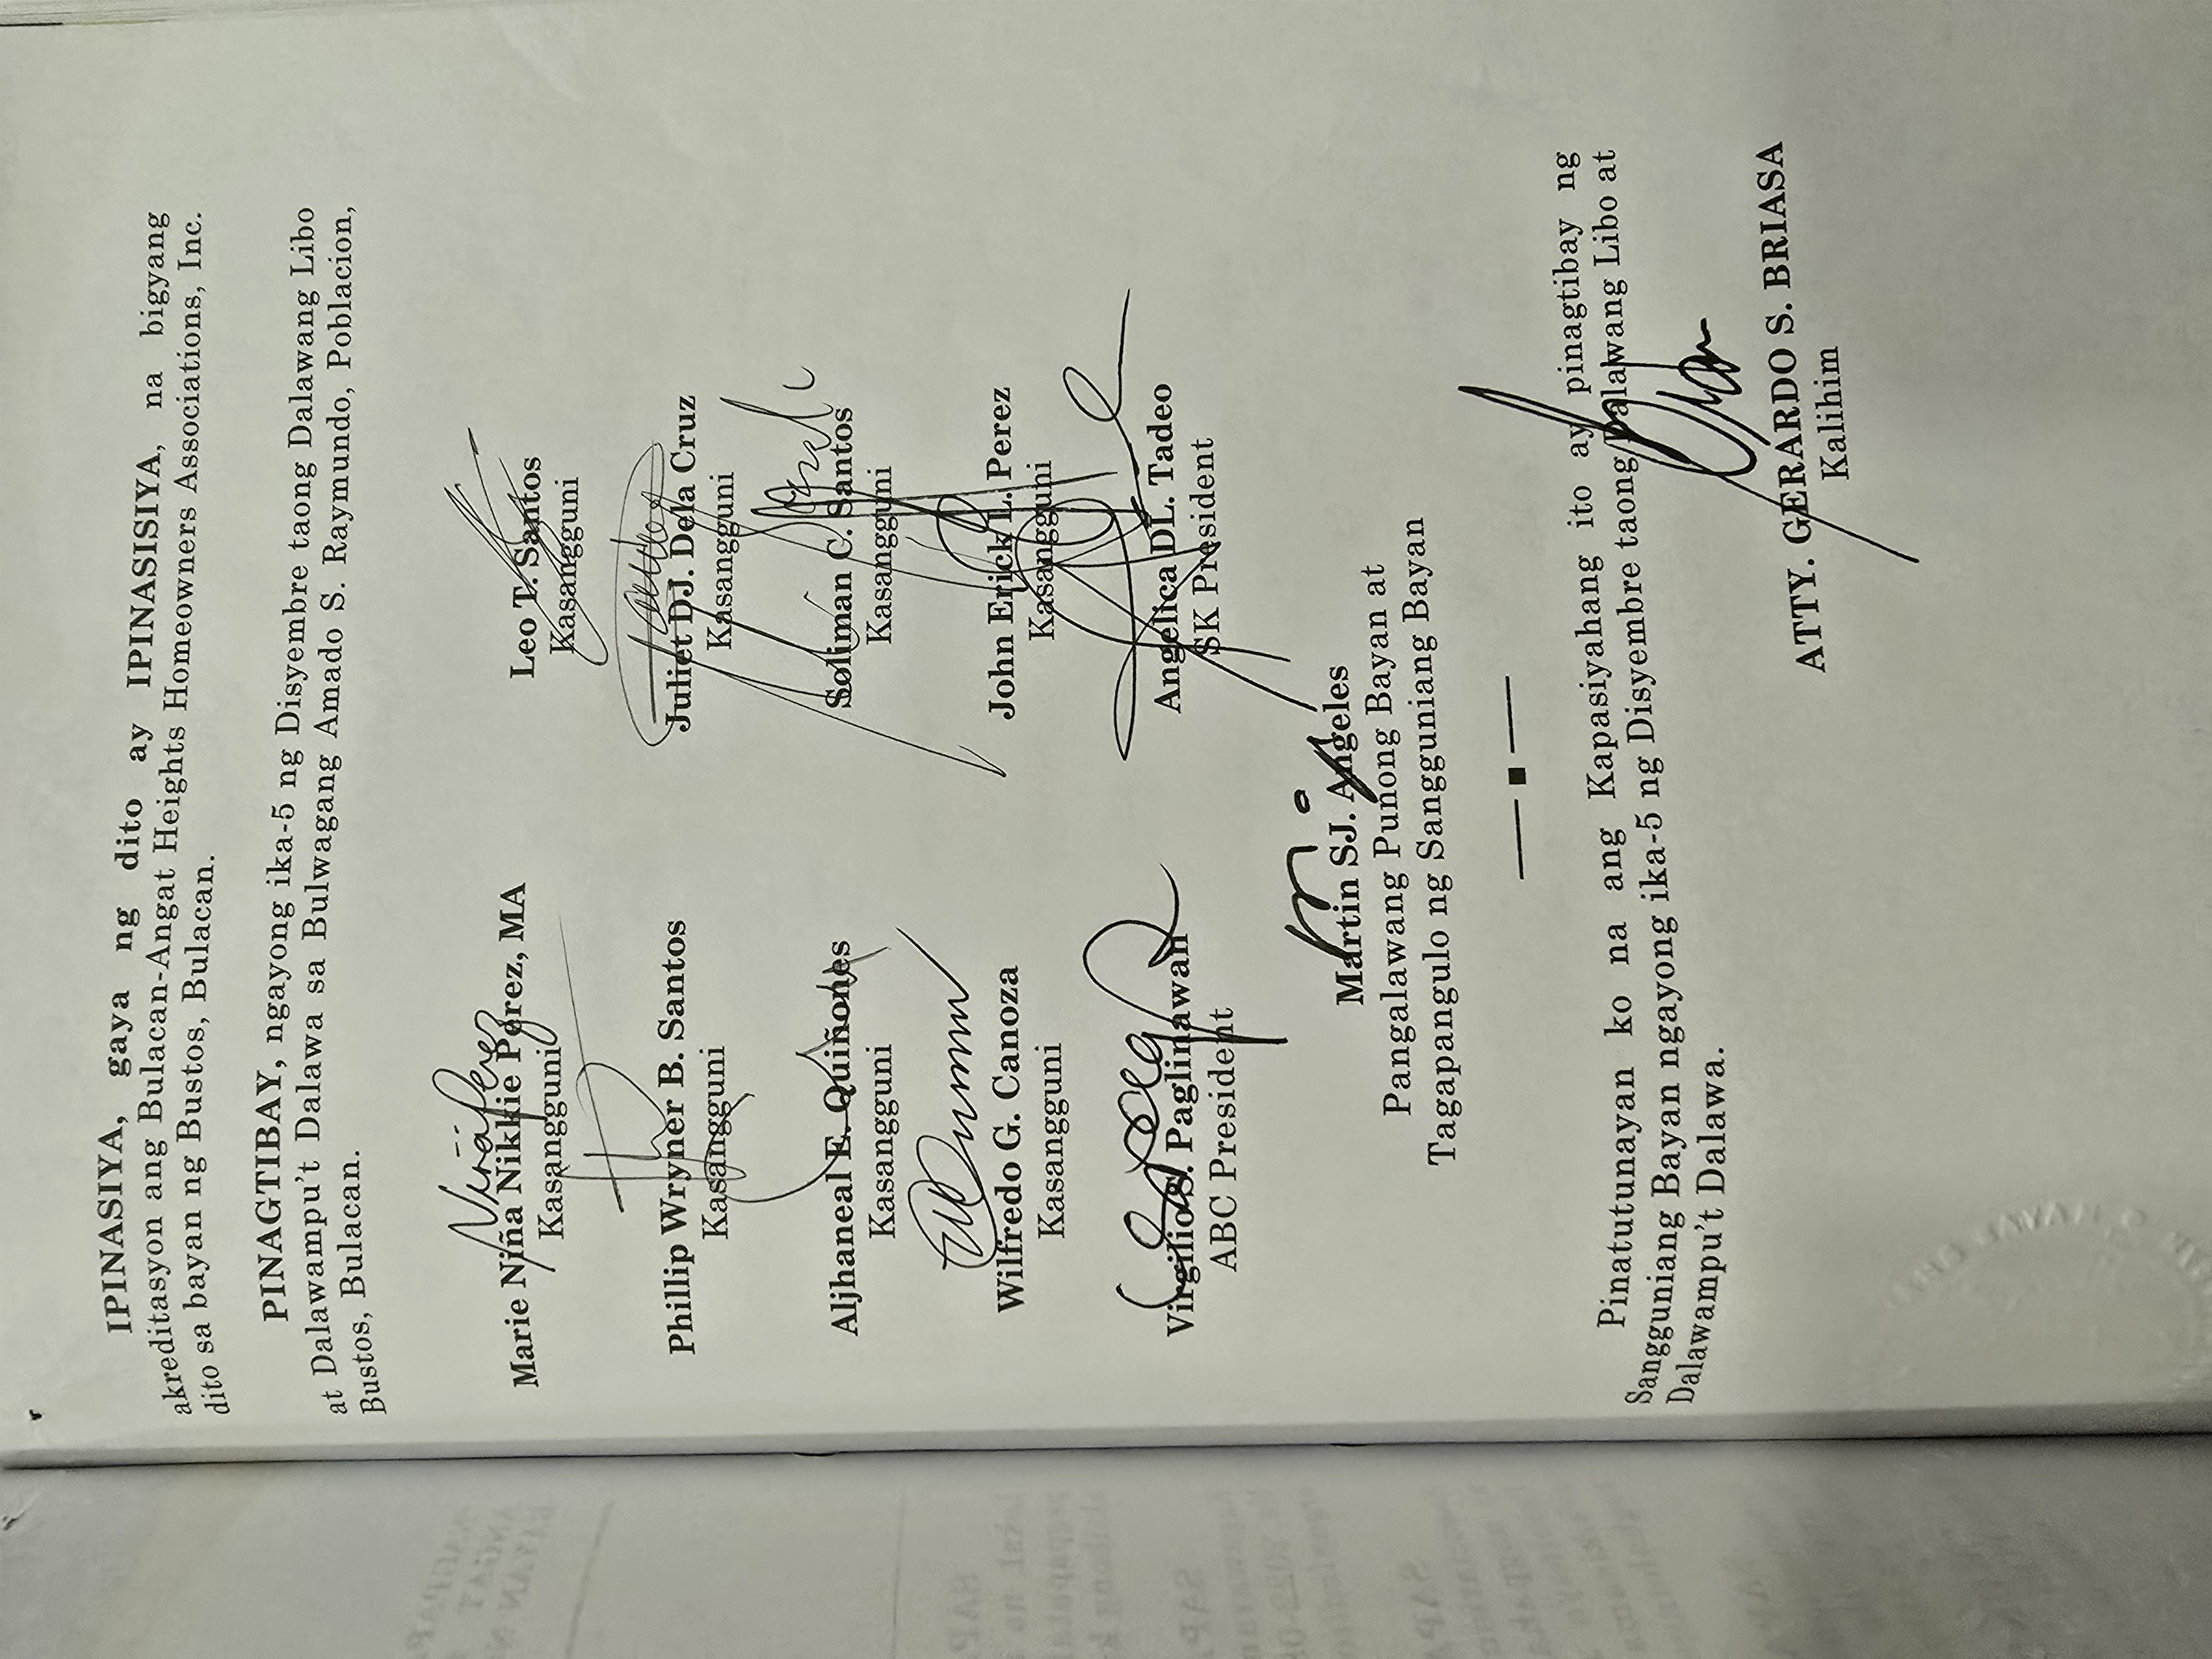 IPINASIYA, gaya ng dito ay IPINASISIYA, na bigyang
akreditasyon ang Bulacan-Angat Heights Homeowners Associations, Inc.
dito sa bayan ng Bustos, Bulacan.
PINAGTIBAY, ngayong ika-5 ng Disyembre taong Dalawang Libo
at Dalawampu't Dalawa sa Bulwagang Amado S. Raymundo, Poblacion,
Bustos, Bulacan.
Marie Niña Nikkie Perez, MA
Kasangguni
Leo T. Santos
Kasangguni
Phillip Wryner B. Santos
Kasangguni
Juliet DJ. Dela Cruz
Kasangguni
Aljhaneal E. Quiñones
Kasangguni
Soliman C. Santos
Kasangguni
Wilfredo G. Canoza
Kasangguni
John Erick L. Perez
Kasangguni
Virgilio S. Paglinawan
ABC President
Angelica DL. Tadeo
SK President
Martin SJ. Angeles
Pangalawang Punong Bayan at
Tagapangulo ng Sangguniang Bayan
Pinatutunayan ko na ang Kapasiyahang ito ay pinagtibay ng
Sangguniang Bayan ngayong ika-5 ng Disyembre taong Dalawang Libo at
Dalawampu't Dalawa.
ATTY. GERARDO S. BRIASA
Kalihim